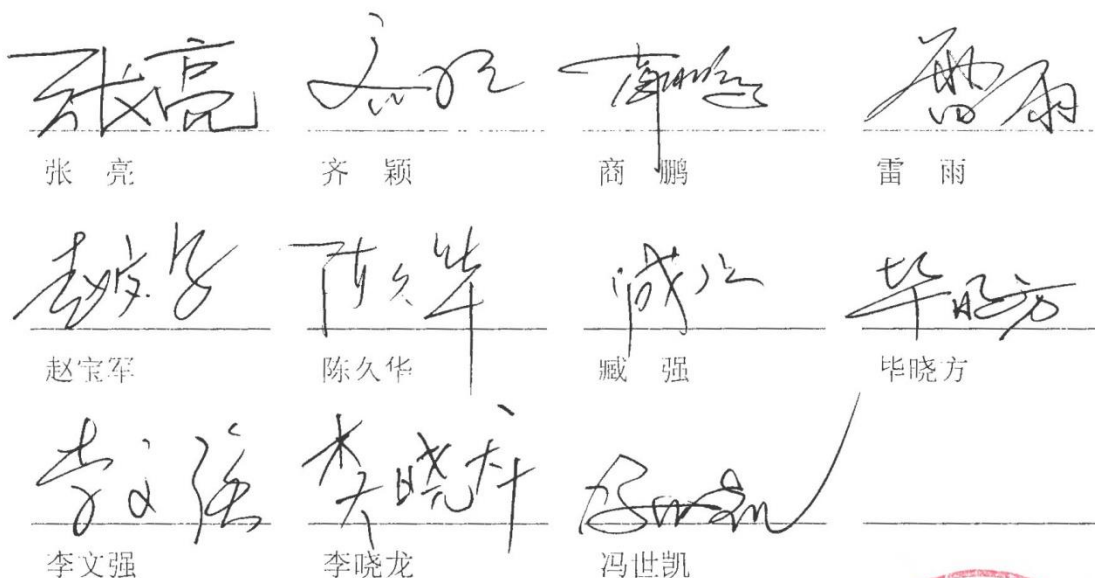 张亮 齐颖 商鹏 雷雨
张 亮 齐 颖 商 鹏 雷 雨
陈久华 毕晓方
赵宝军 陈久华 臧 强 毕晓方
李文强 冯世凯
李文强 李晓龙 冯世凯